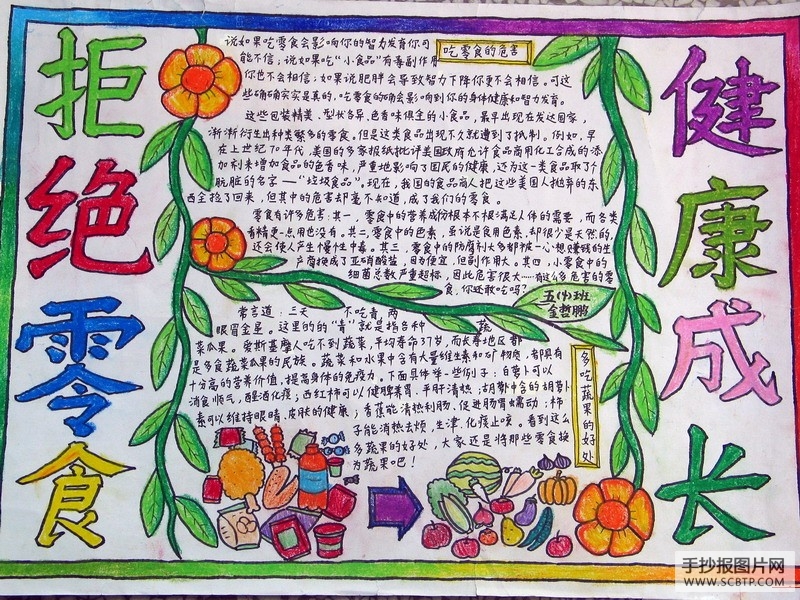 拒绝零食
健康成长
吃零食的危害
说如果吃零食会影响你的智力发育你可
能不信；说如果吃“小食品”有毒副作用
你也不会相信；如果说肥胖会导致智力下降你更不会相信。可这
些确确实实是真的，吃零食的确会影响到你的身体健康和智力发育。
这些包装精美、型状各异、色香味俱全的小食品，最早出现在发达国家，
渐渐衍生出种类繁多的零食。但是这类食品出现不久就遭到了抵制。例如，早
在上世纪70年代，美国的多家报纸批评美国政府允许食品商用化工合成的添
加剂来增加食品的色香味，严重地影响了国民的健康，还为这一类食品取了个
肮脏的名字——“垃圾食品”。现在，我国的食品商人把这些美国人抛弃的东
西全捡了回来，但其中的危害却毫不知道，成了我们的零食。
零食有许多危害：其一，零食中的营养成份根本不能满足人体的需要，而各类
香精更一点用也没有。其二，零食中的色素，虽说是食用色素，却很少是天然的，
还会使人产生慢性中毒。其三，零食中的防腐剂大多都被一心想赚钱的生
产商换成了亚硝酸盐，因为便宜，但副作用大。其四，小零食中的
细菌总数严重超标，因此危害很大……有这么多危害的零
食，你还敢吃吗？
五(4)班
金哲鹏
多吃蔬果的好处
常言道：三天不吃青，两
眼冒金星。这里的的“青”就是指各种蔬
菜瓜果。爱斯基摩人吃不到蔬菜，平均寿命37岁，而长寿地区都
是多食蔬菜瓜果的民族。蔬菜和水果中含有大量维生素和矿物质，都具有
十分高的营养价值，提高身体的免疫力。下面具体举一些例子：白萝卜可以
消食顺气，醒酒化痰；西红柿可以健脾养胃、平肝清热；胡萝卜中含的胡萝卜
素可以维持眼睛、皮肤的健康；香蕉能清热利肠、促进肠胃蠕动；柿
子能消热去烦，生津、化痰止咳。看到这么
多蔬果的好处，大家还是将那些零食换
为蔬果吧！
手抄报图片网
WWW.SCBTP.COM